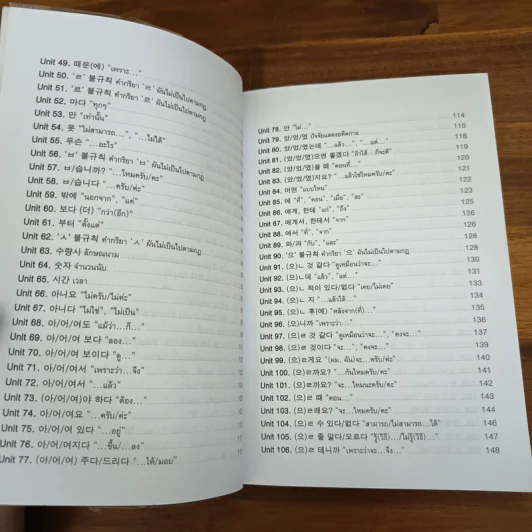 Unit 49. 때문(에) "เพราะ..."
Unit 50. 'ㄹ' 불규칙 คำกริยา 'ㄹ' ผันไม่เป็นไปตามกฎ
Unit 51. '르' 불규칙 คำกริยา '르' ผันไม่เป็นไปตามกฎ
Unit 52. 마다 "ทุกๆ"
Unit 53. 만 "เท่านั้น"
Unit 54. 못 "ไม่สามารถ...", "...ไม่ได้"
Unit 55. 무슨 "...อะไร"
Unit 56. 'ㅂ' 불규칙 คำกริยา 'ㅂ' ผันไม่เป็นไปตามกฎ
Unit 57. ㅂ/습니까? "...ไหมครับ/คะ"
Unit 58. ㅂ/습니다 "...ครับ/ค่ะ"
Unit 59. 밖에 "นอกจาก", "แค่"
Unit 60. 보다 (더) "กว่า(อีก)"
Unit 61. 부터 "ตั้งแต่"
Unit 62. 'ㅅ' 불규칙 คำกริยา 'ㅅ' ผันไม่เป็นไปตามกฎ
Unit 63. 수량사 ลักษณนาม
Unit 64. 숫자 จำนวนนับ
Unit 65. 시간 เวลา
Unit 66. 아니요 "ไม่ครับ/ไม่ค่ะ"
Unit 67. 아니다 "ไม่ใช่", "ไม่เป็น"
Unit 68. 아/어/여도 "แม้ว่า...ก็..."
Unit 69. 아/어/여 보다 "ลอง..."
Unit 70. 아/어/여 보이다 "ดู..."
Unit 71. 아/어/여서 "เพราะว่า...จึง"
Unit 72. 아/어/여서 "...แล้ว"
Unit 73. (아/어/여)야 하다 "ต้อง..."
Unit 74. 아/어/여요 "...ครับ/ค่ะ"
Unit 75. 아/어/여 있다 "...อยู่"
Unit 76. 아/어/여지다 "...ขึ้น/...ลง"
Unit 77. (아/어/여) 주다/드리다 "...ให้/มอบ"
Unit 78. 안 "ไม่..." 114
Unit 79. 았/었/였 ปัจจัยแสดงอดีตกาล 115
Unit 80. 았/었/였는데 "...แล้ว...", "...แต่..." 118
Unit 81. (았/었/였)으면 좋겠다 "ถ้าได้...ก็จะดี" 119
Unit 82. (았/었/였)을 때 "ตอนที่..." 120
Unit 83. (았/었/였)지요? "...แล้วใช่ไหมครับ/คะ" 121
Unit 84. 어떤 "แบบไหน" 122
Unit 85. 에 "ที่", "ตอน", "เมื่อ", "ละ" 123
Unit 86. 에게, 한테 "แก่", "ถึง"
Unit 87. 에게서, 한테서 "จาก"
Unit 88. 에서 "ที่", "จาก"
Unit 89. 와/과 "กับ", "และ" 128
Unit 90. '으' 불규칙 คำกริยา '으' ผันไม่เป็นไปตามกฎ 128
Unit 91. (으)ㄴ 것 같다 "ดูเหมือนว่าจะ..." 130
Unit 92. (으)ㄴ데 "แล้ว", "แต่..." 131
Unit 93. (으)ㄴ 적이 있다/없다 "เคย/ไม่เคย" 133
Unit 94. (으)ㄴ 지 "...แล้วได้..." 134
Unit 95. (으)ㄴ 후(에) "หลังจาก(ที่)..." 135
Unit 96. (으)니까 "เพราะว่า..." 136
Unit 97. (으)ㄹ 것 같다 "ดูเหมือนว่าจะ...", "คงจะ..." 137
Unit 98. (으)ㄹ 것이다 "จะ...", "คงจะ..." 138
Unit 99. (으)ㄹ게요 "(ผม, ฉัน)จะ...ครับ/ค่ะ" 139
Unit 100. (으)ㄹ까요? "...กันไหมครับ/คะ" 140
Unit 101. (으)ㄹ까요? "จะ...ไหมนะครับ/คะ" 141
Unit 102. (으)ㄹ 때 "ตอน..." 142
Unit 103. (으)ㄹ래요? "จะ...ไหมครับ/คะ" 143
Unit 104. (으)ㄹ 수 있다/없다 "สามารถ/ไม่สามารถ...ได้" 144
Unit 105. (으)ㄹ 줄 알다/모르다 "รู้(วิธี).../ไม่รู้(วิธี)..." 146
Unit 106. (으)ㄹ 테니까 "เพราะว่าจะ...จึง" 148